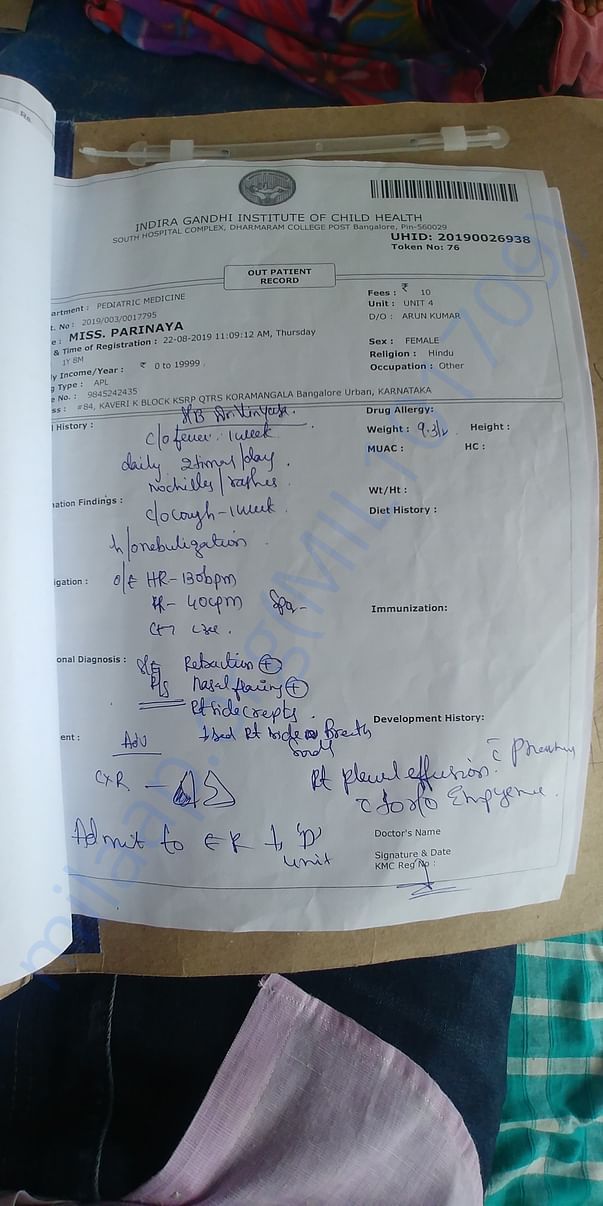 Rs.
INDIRA GANDHI INSTITUTE OF CHILD HEALTH
SOUTH HOSPITAL COMPLEX, DHARMARAM COLLEGE POST Bangalore, Pin-560029
UHID: 20190026938
Token No: 76
OUT PATIENT
RECORD
artment : PEDIATRIC MEDICINE
. No : 2019/003/0017795
e : MISS. PARINAYA
& Time of Registration : 22-08-2019 11:09:12 AM, Thursday
1Y 8M
y Income/Year : ₹ 0 to 19999
g Type : APL
e No. : 9845242435
ss : #84, KAVERI K BLOCK KSRP QTRS KORAMANGALA Bangalore Urban, KARNATAKA
Fees : ₹ 10
Unit : UNIT 4
D/O : ARUN KUMAR
Sex : FEMALE
Religion : Hindu
Occupation : Other
S/B Dr.
l History :
c/o fever - 1 week
daily 2 times/day.
no chills/rashes
ation Findings :
c/o cough - 1 week.
h/o nebulization
igation :
o/E HR - 130bpm
RR - 40cpm Spo2 -
onal Diagnosis :
Retraction +
R/S Nasal flaring +
Rt side crepts.
↓sed Rt side Breath
Sounds
ent :
Adv
CXR -
Admit to ER ↓ 'D'
unit
Drug Allergy:
Weight : 9.3 Height :
MUAC : HC :
Wt/Ht :
Diet History :
Immunization:
Development History:
Rt pleural effusion.
Empyema.
Doctor's Name
Signature & Date
KMC Reg No :
milaap.org(MIL1017709)